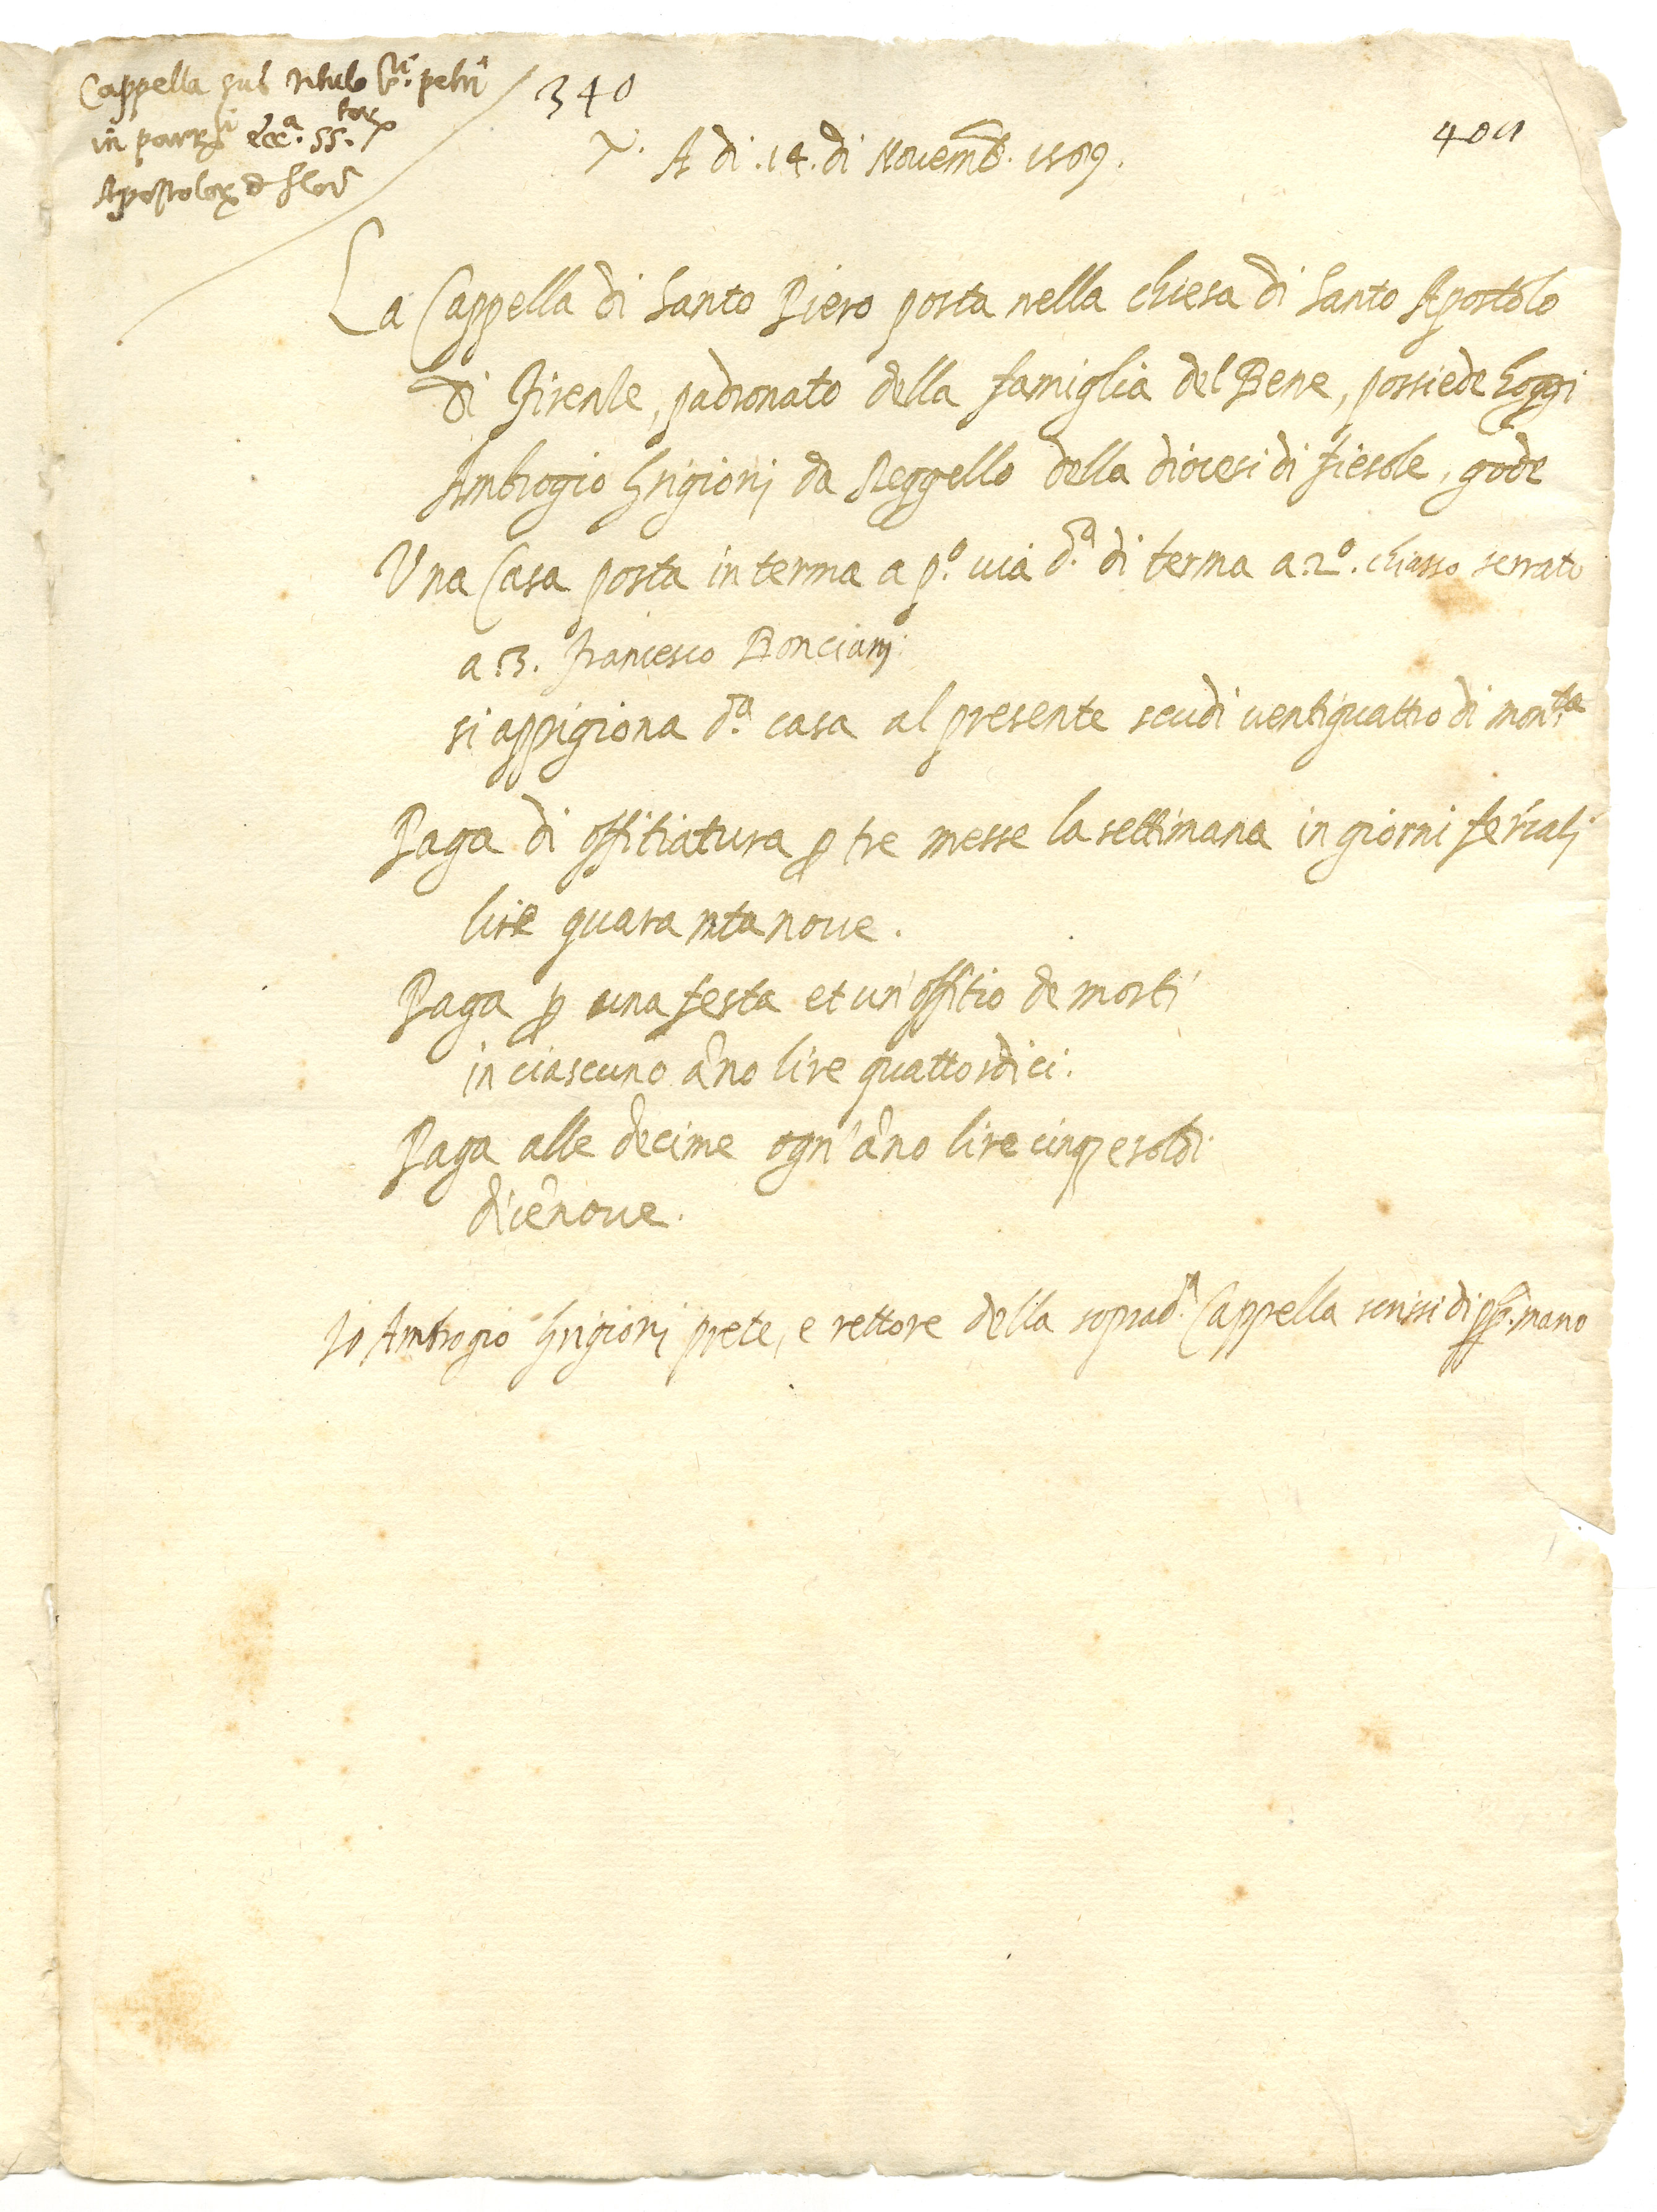 Cappella sub titulo S.ti petri
in parr.li ecc.a SS.torum
Apostolor[um] de Flor
340
401
A di .14. di Novemb. 1589.
La Cappella di Santo Piero posta nella chiesa di Santo Apostolo
di Firenze, padronato della famiglia del Bene, possiede hoggi
Ambrogio Grigionj da Reggello della diocesi di fiesole, gode
Una Casa posta in terma a p.o via d.a di terma a 2.o chiasso serrato
a .3. FrancescoBoncianj.
si appigiona d.a casa al presente scudi ventiquattro di mon.ta
Paga di offitiatura p tre messe la settimana in giorni ferialj
lire quarantanove.
Paga p una festa et un'offitio de morti
in ciascuno año lire quattordici.
Paga alle decime ogn'año lire cinq; e soldi
dicênove.
Io Ambrogio Grigionj prete, e rettore della soprad.a Cappella scrissi di pp.a mano